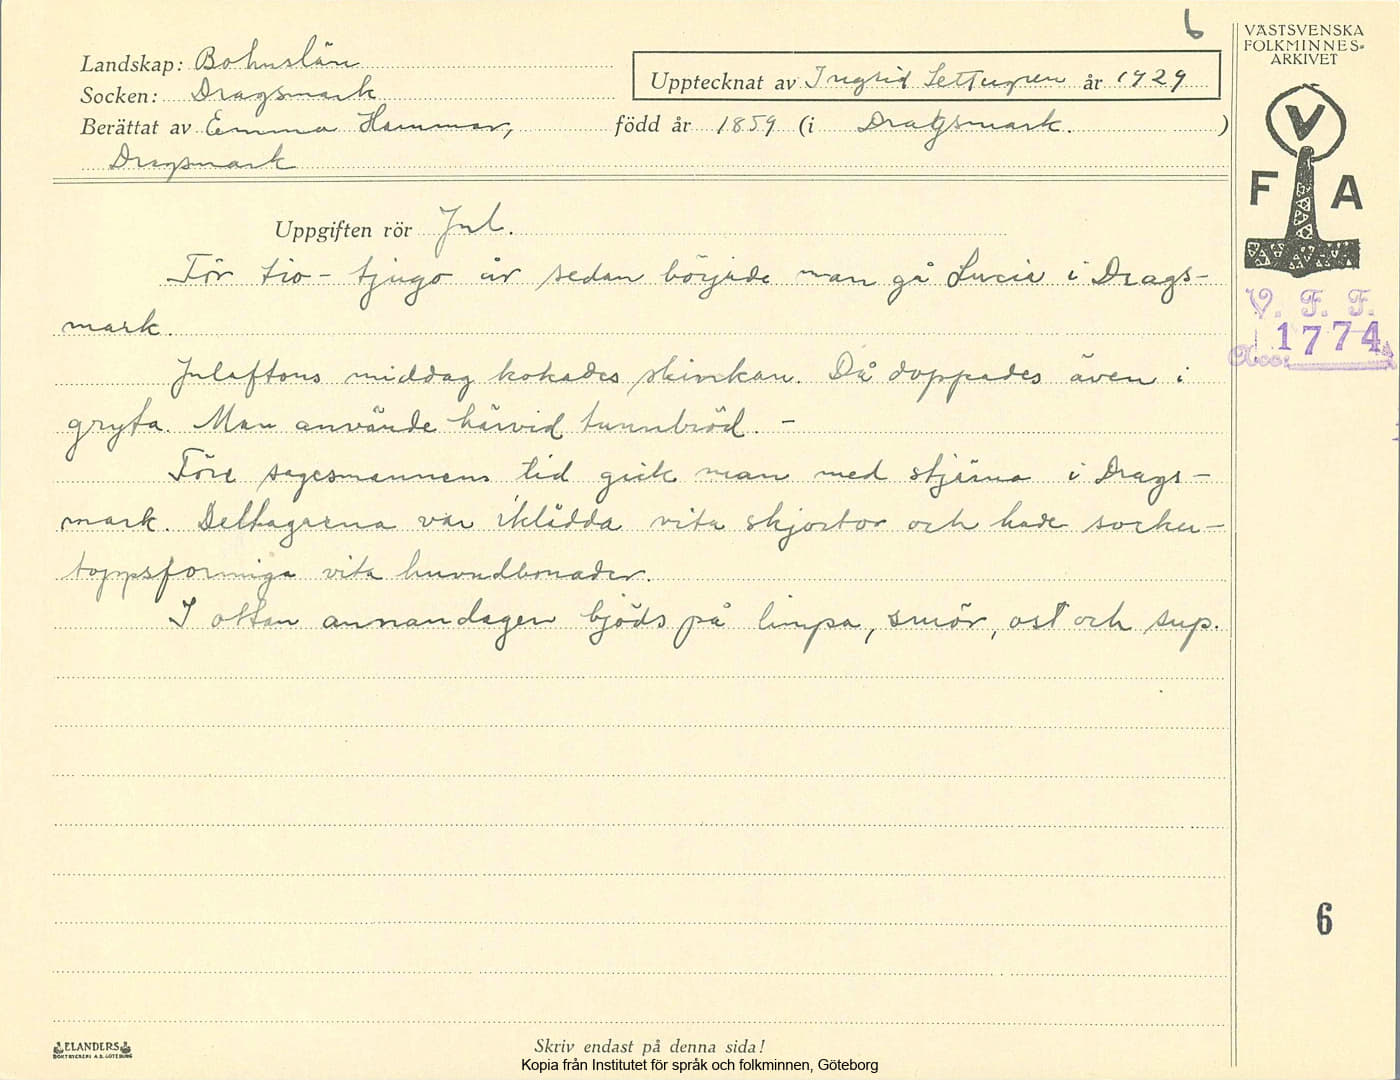 6
VÄSTSVENSKA
FOLKMINNES-
ARKIVET
Landskap: Bohuslän
Upptecknat av Ingrid Settergren år 1929
Socken: Dragsmark
Berättat av Emma Hammar, född år 1859 (i Dragsmark. )
Dragsmark
V
F A
Uppgiften rör Jul.
För tio- tjugo år sedan började man gå Lucia i Drags-
mark.
V. F. F.
Acc. 1774
Julaftons middag kokades skinkan. Då doppades även i
gryta. Man använde härvid tunnbröd. -
Före sagesmannens tid gick man med stjärna i Drags-
mark. Deltagarna var iklädda vita skjortor och hade socker-
toppsformiga vita huvudbonader.
I ottan annandagen bjöds på limpa, smör, ost och sup.
6
ELANDERS
BOKTRYCKERI A.B. GÖTEBORG
Skriv endast på denna sida!
Kopia från Institutet för språk och folkminnen, Göteborg